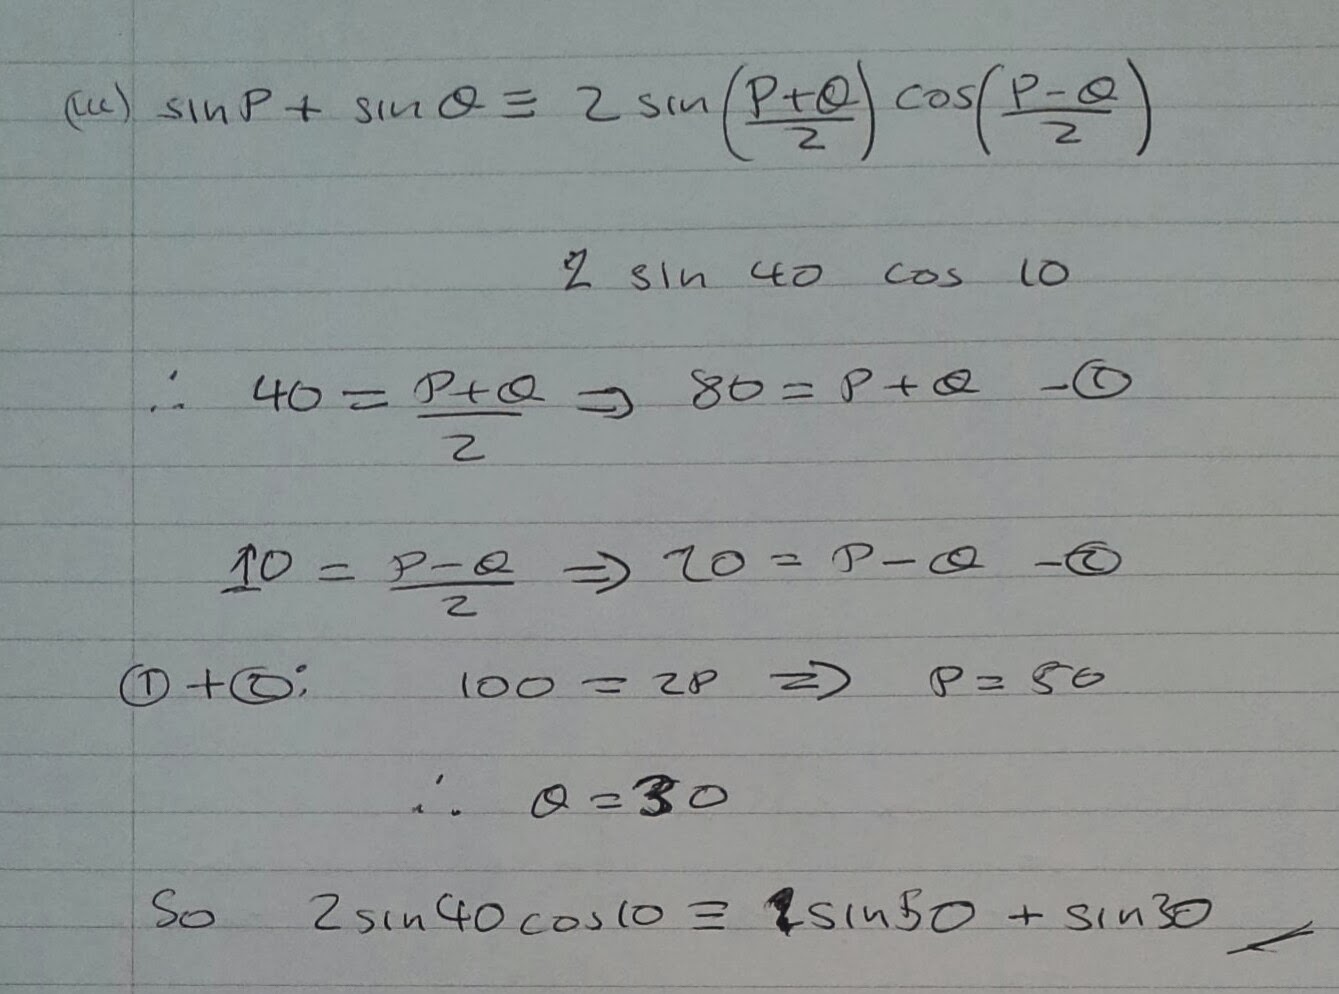 (iii) sinP + sinQ ≡ 2 sin((P+Q)/2) cos((P-Q)/2)
2 sin 40 cos 10
∴ 40 = (P+Q)/2 ⇒ 80 = P + Q -①
10 = (P-Q)/2 ⇒ 20 = P - Q -②
①+②: 100 = 2P ⇒ P = 50
∴ Q = 30
So 2sin40cos10 ≡ sin50 + sin30